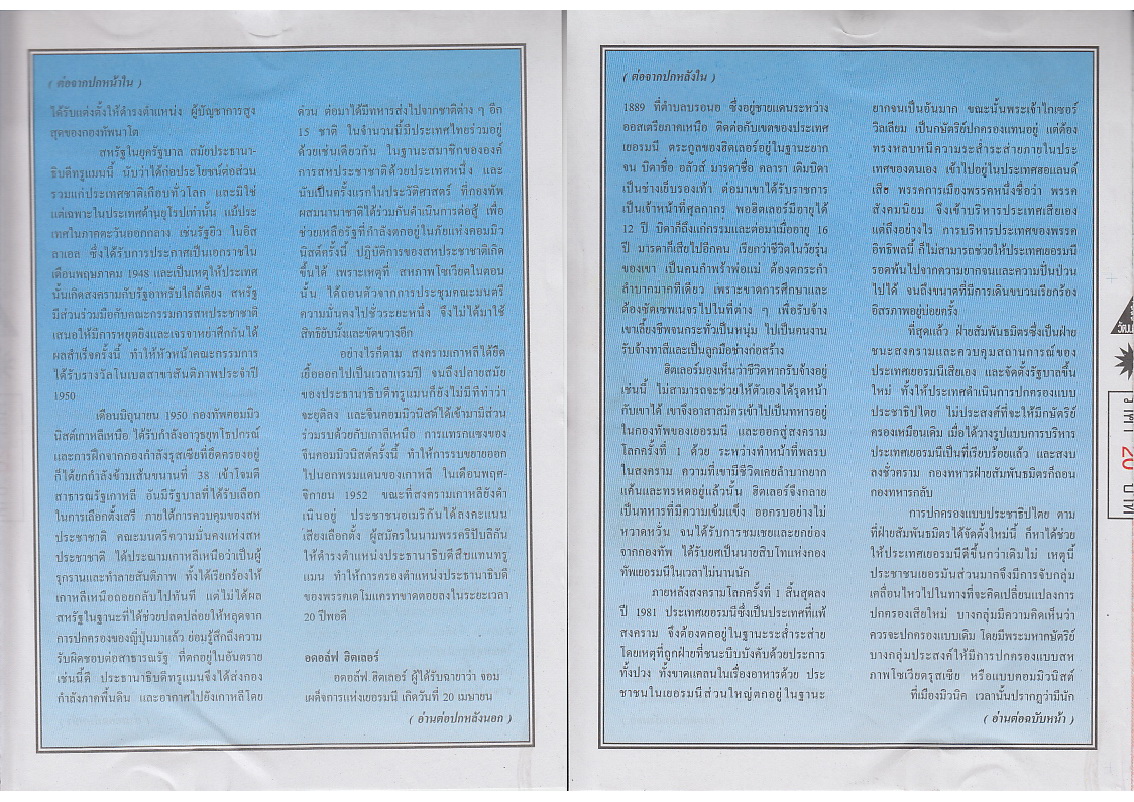 ( ต่อจากปกหน้าใน )
ได้รับแต่งตั้งให้ดำรงตำแหน่ง ผู้บัญชาการสูง
สุดของกองทัพนาโต
สหรัฐในยุครัฐบาล สมัยประธานา-
ธิบดีทรูแมนนี้ นับว่าได้ก่อประโยชน์ต่อส่วน
รวมแก่ประเทศชาติเกือบทั่วโลก และมิใช่
แต่เฉพาะในประเทศด้านยุโรปเท่านั้น แม้ประ
เทศในภาคตะวันออกกลาง เช่นรัฐยิว ในอิส
ลาเอล ซึ่งได้รับการประกาศเป็นเอกราชใน
เดือนพฤษภาคม 1948 และเป็นเหตุให้ประเทศ
นั้นเกิดสงครามกับรัฐอาหรับใกล้เคียง สหรัฐ
มีส่วนร่วมมือกับคณะกรรมการสหประชาชาติ
เสนอให้มีการหยุดยิงและเจรจาหย่าศึกกันได้
ผลสำเร็จครั้งนี้ ทำให้หัวหน้าคณะกรรมการ
ได้รับรางวัลโนเบลสาขาสันติภาพประจำปี
1950
เดือนมิถุนายน 1950 กองทัพคอมมิว
นิสต์เกาหลีเหนือ ได้รับกำลังอาวุธยุทโธปกรณ์
และการฝึกจากกองกำลังรุสเซียที่ยึดครองอยู่
ก็ได้ยกกำลังข้ามเส้นขนานที่ 38 เข้าโจมตี
สาธารณรัฐเกาหลี อันมีรัฐบาลที่ได้รับเลือก
ในการเลือกตั้งเสรี ภายใต้การควบคุมของสห
ประชาชาติ คณะมนตรีความมั่นคงแห่งสห
ประชาชาติ ได้ประณามเกาหลีเหนือว่าเป็นผู้
รุกรานและทำลายสันติภาพ ทั้งได้เรียกร้องให้
เกาหลีเหนือถอยกลับไปทันที แต่ไม่ได้ผล
สหรัฐในฐานะที่ได้ช่วยปลดปล่อยให้หลุดจาก
การปกครองของญี่ปุ่นมาแล้ว ย่อมรู้สึกถึงความ
รับผิดชอบต่อสาธารณรัฐ ที่ตกอยู่ในอันตราย
เช่นนี้ดี ประธานาธิบดีทรูแมนจึงได้ส่งกอง
กำลังภาคพื้นดิน และอากาศไปยังเกาหลีโดย
ด่วน ต่อมาได้มีทหารส่งไปจากชาติต่าง ๆ อีก
15 ชาติ ในจำนวนนี้มีประเทศไทยร่วมอยู่
ด้วยเช่นเดียวกัน ในฐานะสมาชิกขององค์
การสหประชาชาติด้วยประเทศหนึ่ง และ
นับเป็นครั้งแรกในประวัติศาสตร์ ที่กองทัพ
ผสมนานาชาติได้ร่วมกันดำเนินการต่อสู้ เพื่อ
ช่วยเหลือรัฐที่กำลังตกอยู่ในภัยแห่งคอมมิว
นิสต์ครั้งนี้ ปฏิบัติการของสหประชาชาติเกิด
ขึ้นได้ เพราะเหตุที่ สหภาพโซเวียตในตอน
นั้น ได้ถอนตัวจากการประชุมคณะมนตรี
ความมั่นคงไปชั่วระยะหนึ่ง จึงไม่ได้มาใช้
สิทธิยับนั้งและขัดขวางอีก
อย่างไรก็ตาม สงครามเกาหลีได้ยืด
เยื้อออกไปเป็นเวลาแรมปี จนถึงปลายสมัย
ของประธานาธิบดีทรูแมนก็ยังไม่มีทีท่าว่า
จะยุติลง และจีนคอมมิวนิสต์ได้เข้ามามีส่วน
ร่วมรบด้วยกับเกาลีเหนือ การแทรกแซงของ
จีนคอมมิวนิสต์ครั้งนี้ ทำให้การรบขยายออก
ไปนอกพรมแดนของเกาหลี ในเดือนพฤศ-
จิกายน 1952 ขณะที่สงครามเกาหลียังดำ
เนินอยู่ ประชาชนอเมริกันได้ลงคะแนน
เสียงเลือกตั้ง ผู้สมัครในนามพรรคริปับลิกัน
ให้ดำรงตำแหน่งประธานาธิบดีสืบแทนทรู
แมน ทำให้การครองตำแหน่งประธานาธิบดี
ของพรรคเดโมแครทขาดตอยลงในระยะเวลา
20 ปีพอดี
อดอล์ฟ ฮิตเลอร์
อดอล์ฟ ฮิตเลอร์ ผู้ได้รับฉายาว่า จอม
เผด็จการแห่งเยอรมนี เกิดวันที่ 20 เมษายน
( อ่านต่อปกหลังนอก )
( ต่อจากปกหลังใน )
1889 ที่ตำบลบรอนอ ซึ่งอยู่ชายแดนระหว่าง
ออสเตรียภาคเหนือ ติดต่อกับเขตของประเทศ
เยอรมนี ตระกูลของฮิตเลอร์อยู่ในฐานะยาก
จน บิดาชื่อ อลัวส์ มารดาชื่อ คลารา เดิมบิดา
เป็นช่างเย็บรองเท้า ต่อมาเขาได้รับราชการ
เป็นเจ้าหน้าที่ศุลกากร พอฮิตเลอร์มีอายุได้
12 ปี บิดาก็ถึงแก่กรรมและต่อมาเมื่ออายุ 16
ปี มารดาก็เสียไปอีกคน เรียกว่าชีวิตในวัยรุ่น
ของเขา เป็นคนกำพร้าพ่อแม่ ต้องตกระกำ
ลำบากมากทีเดียว เพราะขาดการศึกษาและ
ต้องซัดเซพเนจรไปในที่ต่าง ๆ เพื่อรับจ้าง
เขาเลี้ยงชีพจนกระทั่วเป็นหนุ่ม ไปเป็นคนงาน
รับจ้างทาสีและเป็นลูกมือช่างก่อสร้าง
ฮิตเลอร์มองเห็นว่าชีวิตหากรับจ้างอยู่
เช่นนี้ ไม่สามารถจะช่วยให้ตัวเองได้รุดหน้า
กับเขาได้ เขาจึงอาสาสมัครเข้าไปเป็นทหารอยู่
ในกองทัพของเยอรมนี และออกสู่สงคราม
โลกครั้งที่ 1 ด้วย ระหว่างทำหน้าที่พลรบ
ในสงคราม ความที่เขามีชีวิตเคยลำบากยาก
แค้นและทรหดอยู่แล้วนั้น ฮิตเลอร์จึงกลาย
เป็นทหารที่มีความเข้มแข็ง ออกรบอย่างไม่
หวาดหวั่น จนได้รับการชมเชยและยกย่อง
จากกองทัพ ได้รับยศเป็นนายสิบโทแห่งกอง
ทัพเยอรมนีในเวลาไม่นานนัก
ภายหลังสงครามโลกครั้งที่ 1 สิ้นสุดลง
ปี 1981 ประเทศเยอรมนีซึ่งเป็นประเทศที่แพ้
สงคราม จึงต้องตกอยู่ในฐานะระส่ำระสาย
โดยเหตุที่ถูกฝ่ายที่ชนะบีบบังคับด้วยประการ
ทั้งปวง ทั้งขาดแคลนในเรื่องอาหารด้วย ประ
ชาชนในเยอรมนีส่วนใหญ่ตกอยู่ในฐานะ
ยากจนเป็นอันมาก ขณะนั้นพระเจ้าไกเซอร์
วิลเลียม เป็นกษัตริย์ปกครองแทนอยู่ แต่ต้อง
ทรงหลบหนีความระส่ำระสายภายในประ
เทศของตนเอง เข้าไปอยู่ในประเทศฮอแลนด์
เสีย พรรคการเมืองพรรคหนึ่งชื่อว่า พรรค
สังคมนิยม จึงเข้าบริหารประเทศเสียเอง
แต่ถึงอย่างไร การบริหารประเทศของพรรค
อิทธิพลนี้ ก็ไม่สามารถช่วยให้ประเทศเยอรมนี
รอดพ้นไปจากความยากจนและความปั่นป่วน
ไปได้ จนถึงขนาดที่มีการเดินขบวนเรียกร้อง
อิสรภาพอยู่บ่อยครั้ง
ที่สุดแล้ว ฝ่ายสัมพันธมิตรซึ่งเป็นฝ่าย
ชนะสงครามและควบคุมสถานการณ์ของ
ประเทศเยอรมนีเสียเอง และจัดตั้งรัฐบาลขึ้น
ใหม่ ทั้งให้ประเทศดำเนินการปกครองแบบ
ประชาธิปไตย ไม่ประสงค์ที่จะให้มีกษัตริย์
ครองเหมือนเดิม เมื่อได้วางรูปแบบการบริหาร
ประเทศเยอรมนีเป็นที่เรียบร้อยแล้ว และสงบ
ลงชั่วคราม กองทหารฝ่ายสัมพันธมิตรก็ถอน
กองทหารกลับ
การปกครองแบบประชาธิปไตย ตาม
ที่ฝ่ายสัมพันธมิตรได้จัดตั้งใหม่นี้ ก็หาได้ช่วย
ให้ประเทศเยอรมนีดีขึ้นกว่าเดิมไม่ เหตุนี้
ประชาชนเยอรมันส่วนมากจึงมีการจับกลุ่ม
เคลื่อนไหวไปในทางที่จะคิดเปลี่ยนแปลงการ
ปกครองเสียใหม่ บางกลุ่มมีความคิดเห็นว่า
ควรจะปกครองแบบเดิม โดยมีพระมหากษัตริย์
บางกลุ่มประสงค์ให้มีการปกครองแบบสห
ภาพโซเวียตรุสเซีย หรือแบบคอมมิวนิสต์
ที่เมืองมิวนิค เวลานั้นปรากฏว่ามีนัก
( อ่านต่อฉบับหน้า )
ราคา 20 บาท